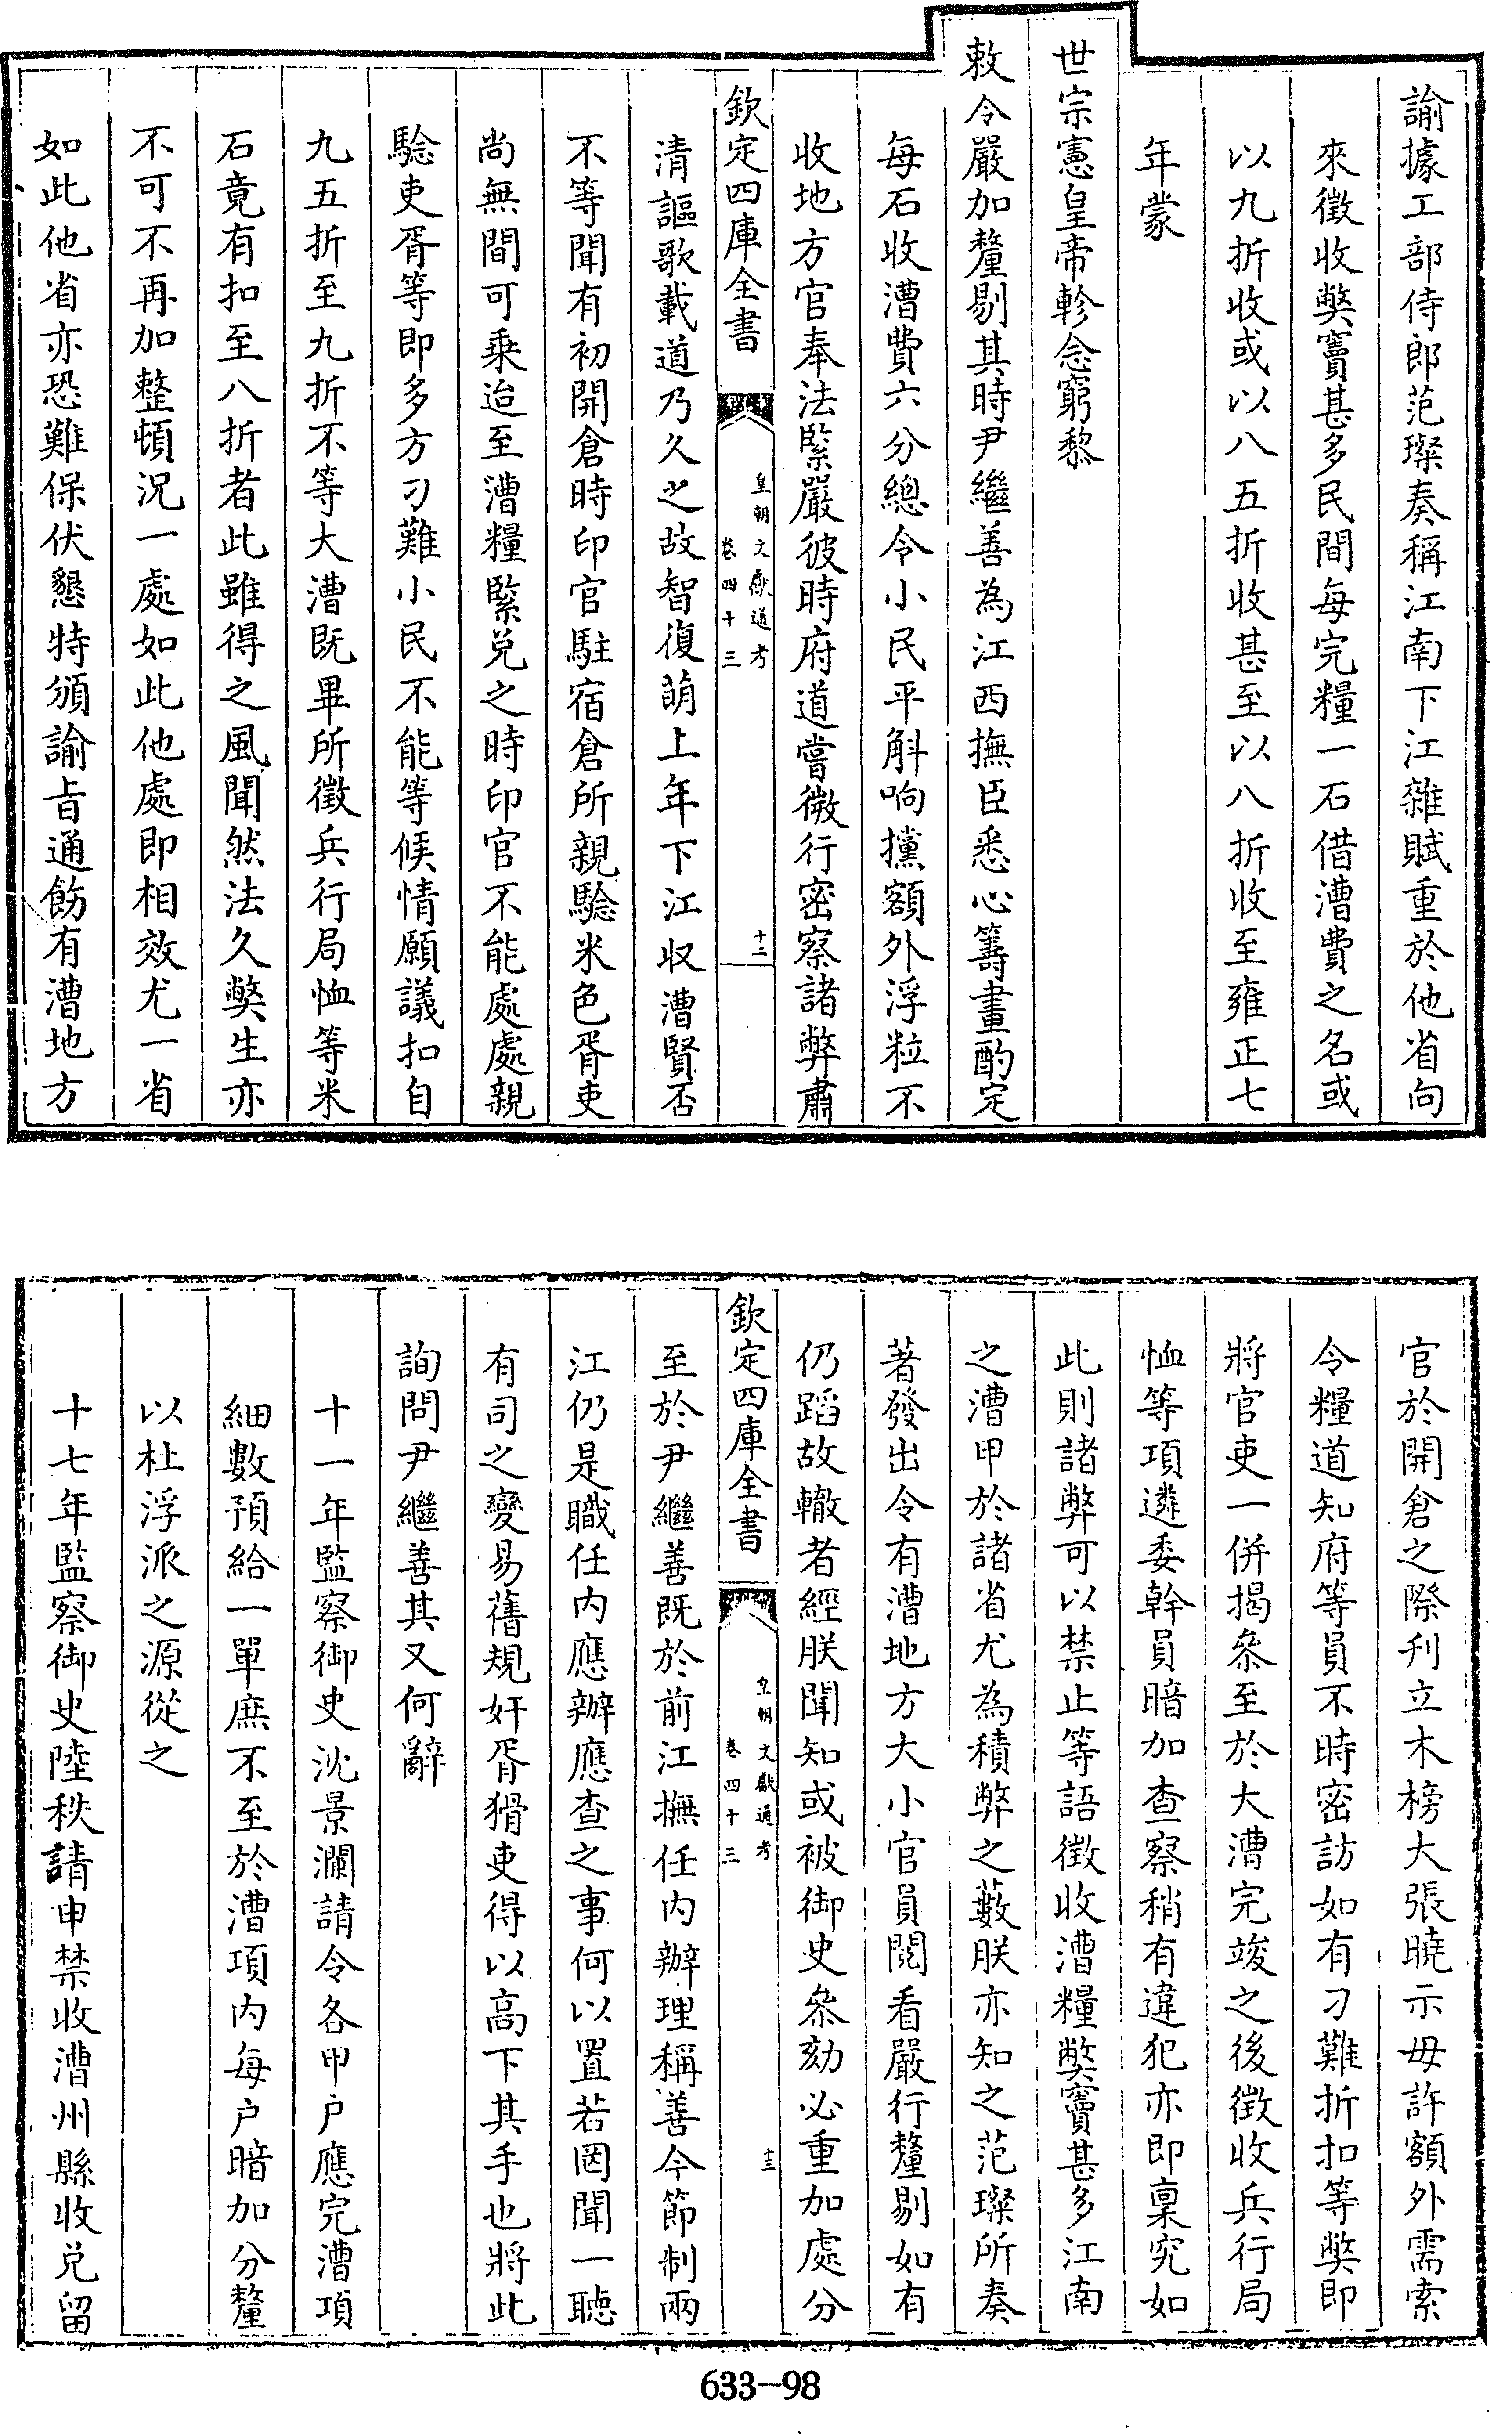 諭據工部侍郎范璨奏稱江南下江雜賦重於他省向
來徵收獘竇甚多民間每完糧一石借漕費之名或
以九折收或以八五折收甚至以八折收至雍正七
年蒙
世宗憲皇帝軫念窮黎
敕令嚴加釐剔其時尹繼善為江西撫臣悉心籌畫酌定
每石收漕費六分總令小民平斛响攩額外浮粒不
收地方官奉法緊嚴彼時府道嘗微行密察諸弊肅
欽定四庫全書
皇朝文獻通考
卷四十三
十二
清謳歌載道乃久之故智復萌上年下江収漕賢否
不等聞有初開倉時印官駐宿倉所親驗米色胥吏
尚無間可乗迨至漕糧緊兑之時印官不能處處親
驗吏胥等即多方刁難小民不能等候情願議扣自
九五折至九折不等大漕既畢所徵兵行局恤等米
石竟有扣至八折者此雖得之風聞然法久獘生亦
不可不再加整頓況一處如此他處即相效尤一省
如此他省亦恐難保伏懇特頒諭旨通飭有漕地方
官於開倉之際刋立木榜大張曉示毋許額外需索
令糧道知府等員不時密訪如有刁難折扣等獘即
將官吏一併揭叅至於大漕完竣之後徵收兵行局
恤等項遴委幹員暗加查察稍有違犯亦即稟究如
此則諸弊可以禁止等語徵收漕糧獘竇甚多江南
之漕甲於諸省尤為積弊之藪朕亦知之范璨所奏
著發出令有漕地方大小官員閱看嚴行釐剔如有
仍蹈故轍者經朕聞知或被御史叅劾必重加處分
欽定四庫全書
皇朝文獻通考
卷四十三
十三
至於尹繼善既於前江撫任内辦理稱善今節制兩
江仍是職任内應辦應查之事何以置若罔聞一聽
有司之變易舊規奸胥猾吏得以高下其手也將此
詢問尹繼善其又何辭
十一年監察御史沈景瀾請令各甲户應完漕項
細數預給一單庶不至於漕項内每户暗加分釐
以杜浮派之源從之
十七年監察御史陸秋請申禁收漕州縣收兑留
633-98